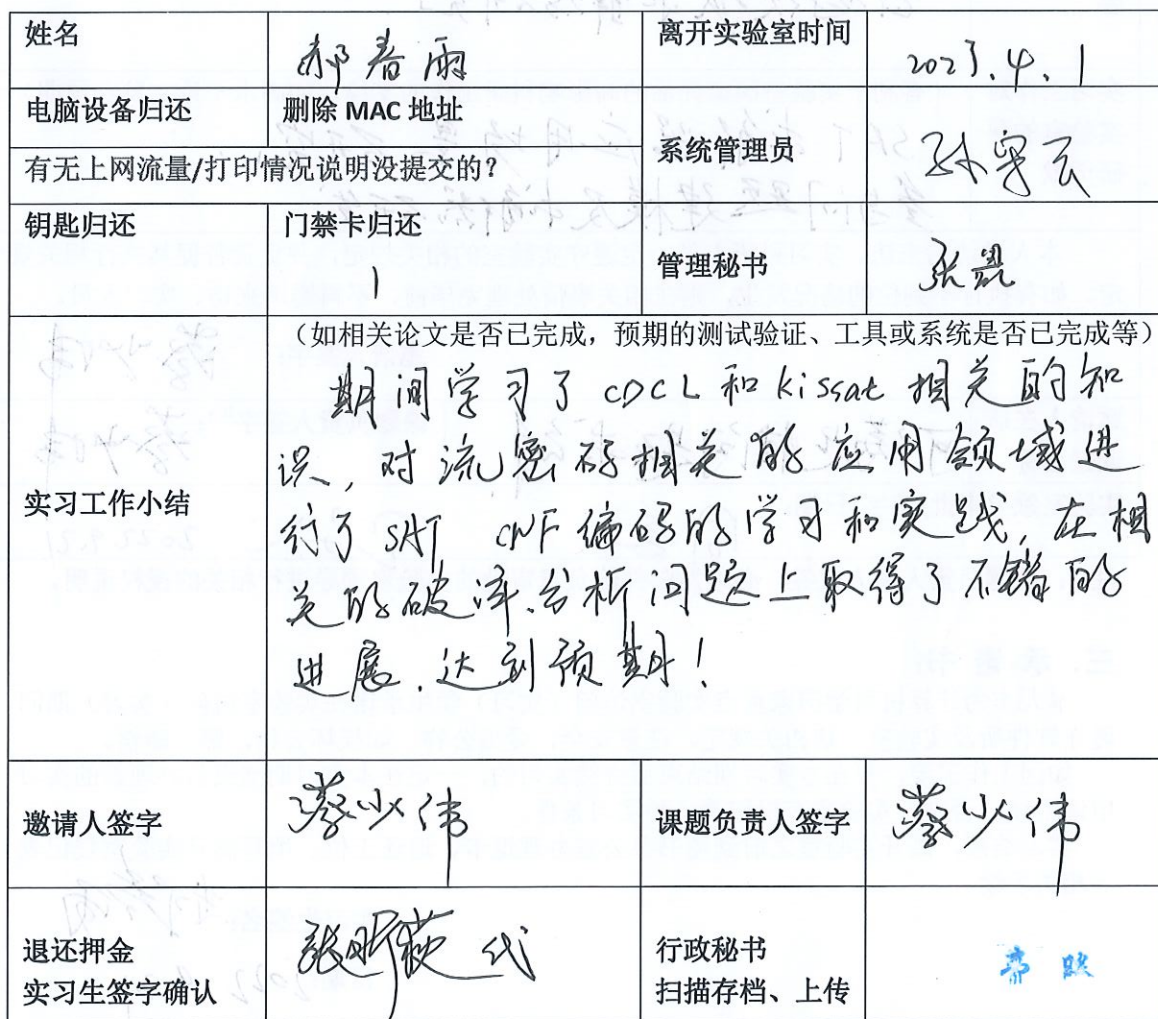 姓名 郝春雨 离开实验室时间 2023.4.1
电脑设备归还 删除 MAC 地址 系统管理员
有无上网流量/打印情况说明没提交的？
钥匙归还 门禁卡归还 1 管理秘书
实习工作小结 （如相关论文是否已完成，预期的测试验证、工具或系统是否已完成等）
期间学习了 CDCL 和 kissat 相关的知
识，对流密码相关的应用领域进
行了 SAT CNF 编码的学习和实践，在相
关的破译、分析问题上取得了不错的
进展，达到预期！
邀请人签字 蔡少伟 课题负责人签字 蔡少伟
退还押金
实习生签字确认 代
行政秘书
扫描存档、上传